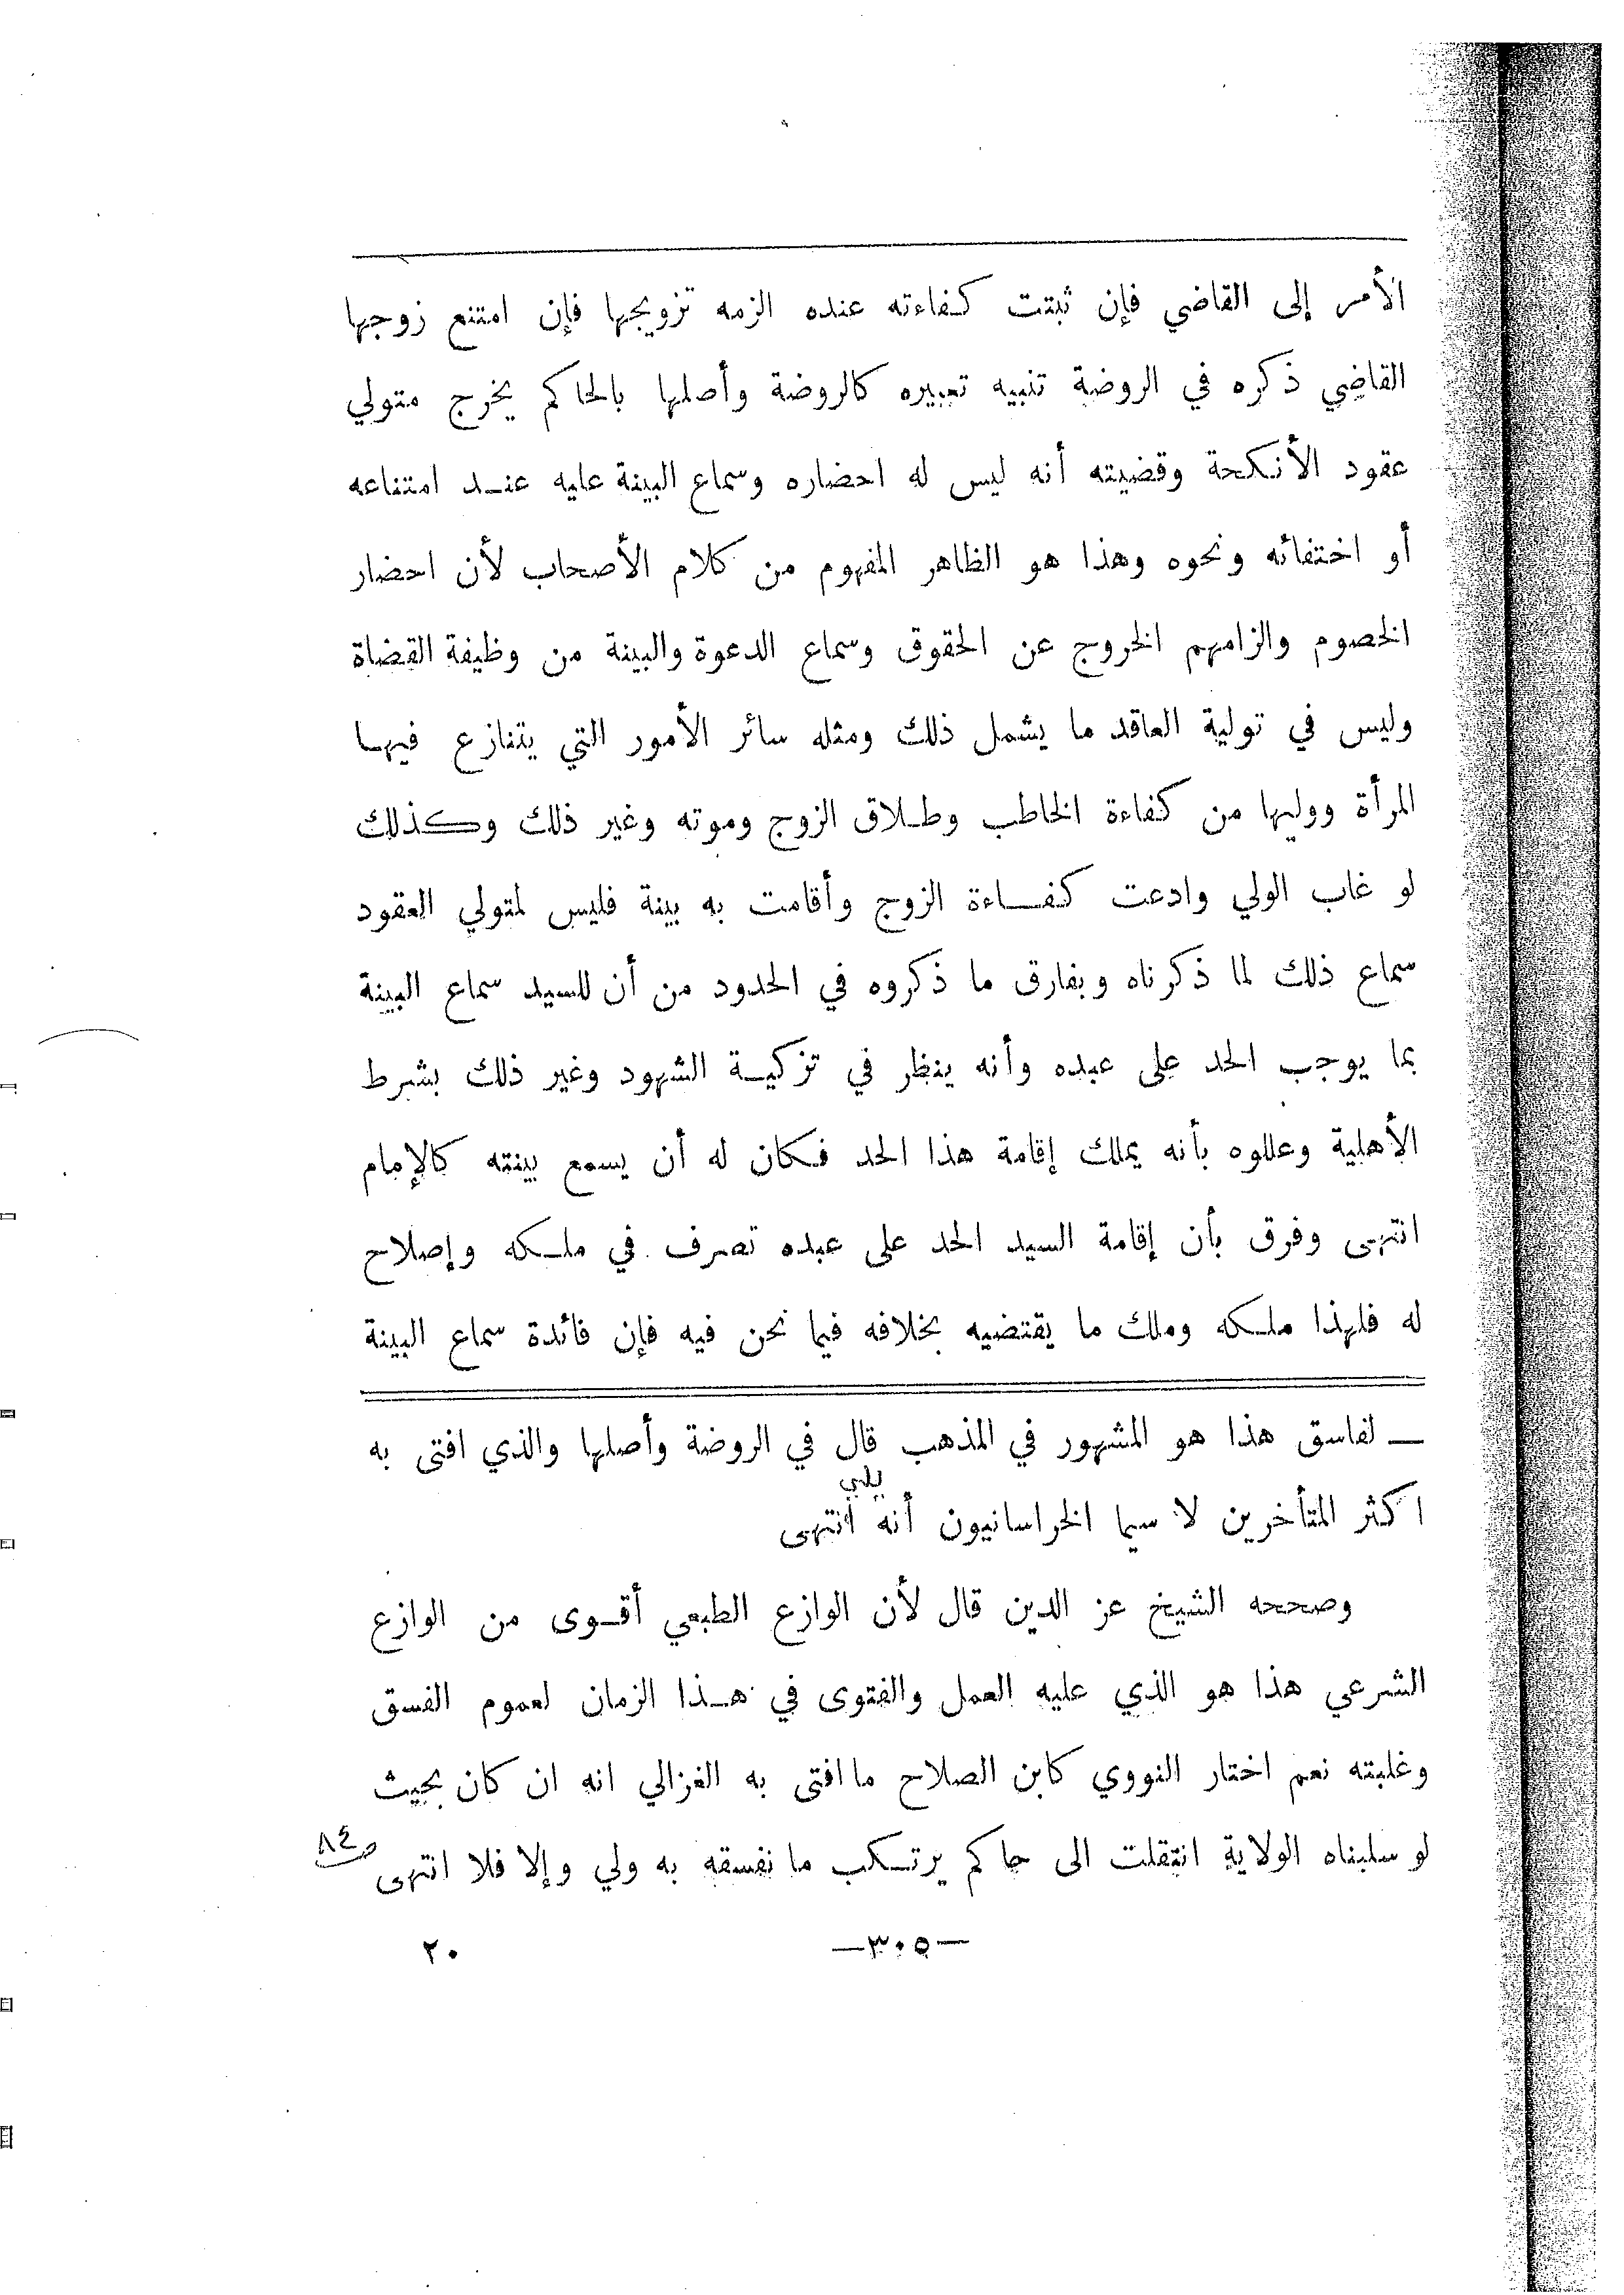 الأمر إلى القاضي فإن ثبتت كفاءته عنده الزمه تزويجها فإن امتنع زوجها
القاضي ذكره في الروضة تنبيه تعبيره كالروضة وأصلها بالحاكم يخرج متولي
عقود الأنكحة وقضيته أنه ليس له احضاره وسماع البينة عليه عند امتناعه
أو اختفائه ونحوه وهذا هو الظاهر المفهوم من كلام الأصحاب لأن احضار
الخصوم والزامهم الخروج عن الحقوق وسماع الدعوة والبينة من وظيفة القضاة
وليس في تولية العاقد ما يشمل ذلك ومثله سائر الأمور التي يتنازع فيها
المرأة ووليها من كفاءة الخاطب وطلاق الزوج وموته وغير ذلك وكذلك
لو غاب الولي وادعت كفاءة الزوج وأقامت به بينة فليس لمتولي العقود
سماع ذلك لما ذكرناه ويفارق ما ذكروه في الحدود من أن للسيد سماع البينة
بما يوجب الحد على عبده وأنه ينظر في تزكية الشهود وغير ذلك بشرط
الأهلية وعللوه بأنه يملك إقامة هذا الحد فكان له أن يسمع بينته كالإمام
انتهى وفرق بأن إقامة السيد الحد على عبده تصرف في ملكه وإصلاح
له فلهذا ملكه وملك ما يقتضيه بخلافه فيما نحن فيه فإن فائدة سماع البينة
ـ لفاسق هذا هو المشهور في المذهب قال في الروضة وأصلها والذي افتى به
يلي
اكثر المتأخرين لا سيما الخراسانيون أنه انتهى
وصححه الشيخ عز الدين قال لأن الوازع الطبعي أقوى من الوازع
الشرعي هذا هو الذي عليه العمل والفتوى في هذا الزمان لعموم الفسق
وغلبته نعم اختار النووي كابن الصلاح ما افتى به الغزالي انه ان كان بحيث
لو سلبناه الولاية انتقلت الى حاكم يرتكب ما نفسقه به ولي وإلا فلا انتهى
ص٨٤
—٣٠٥—
٢٠